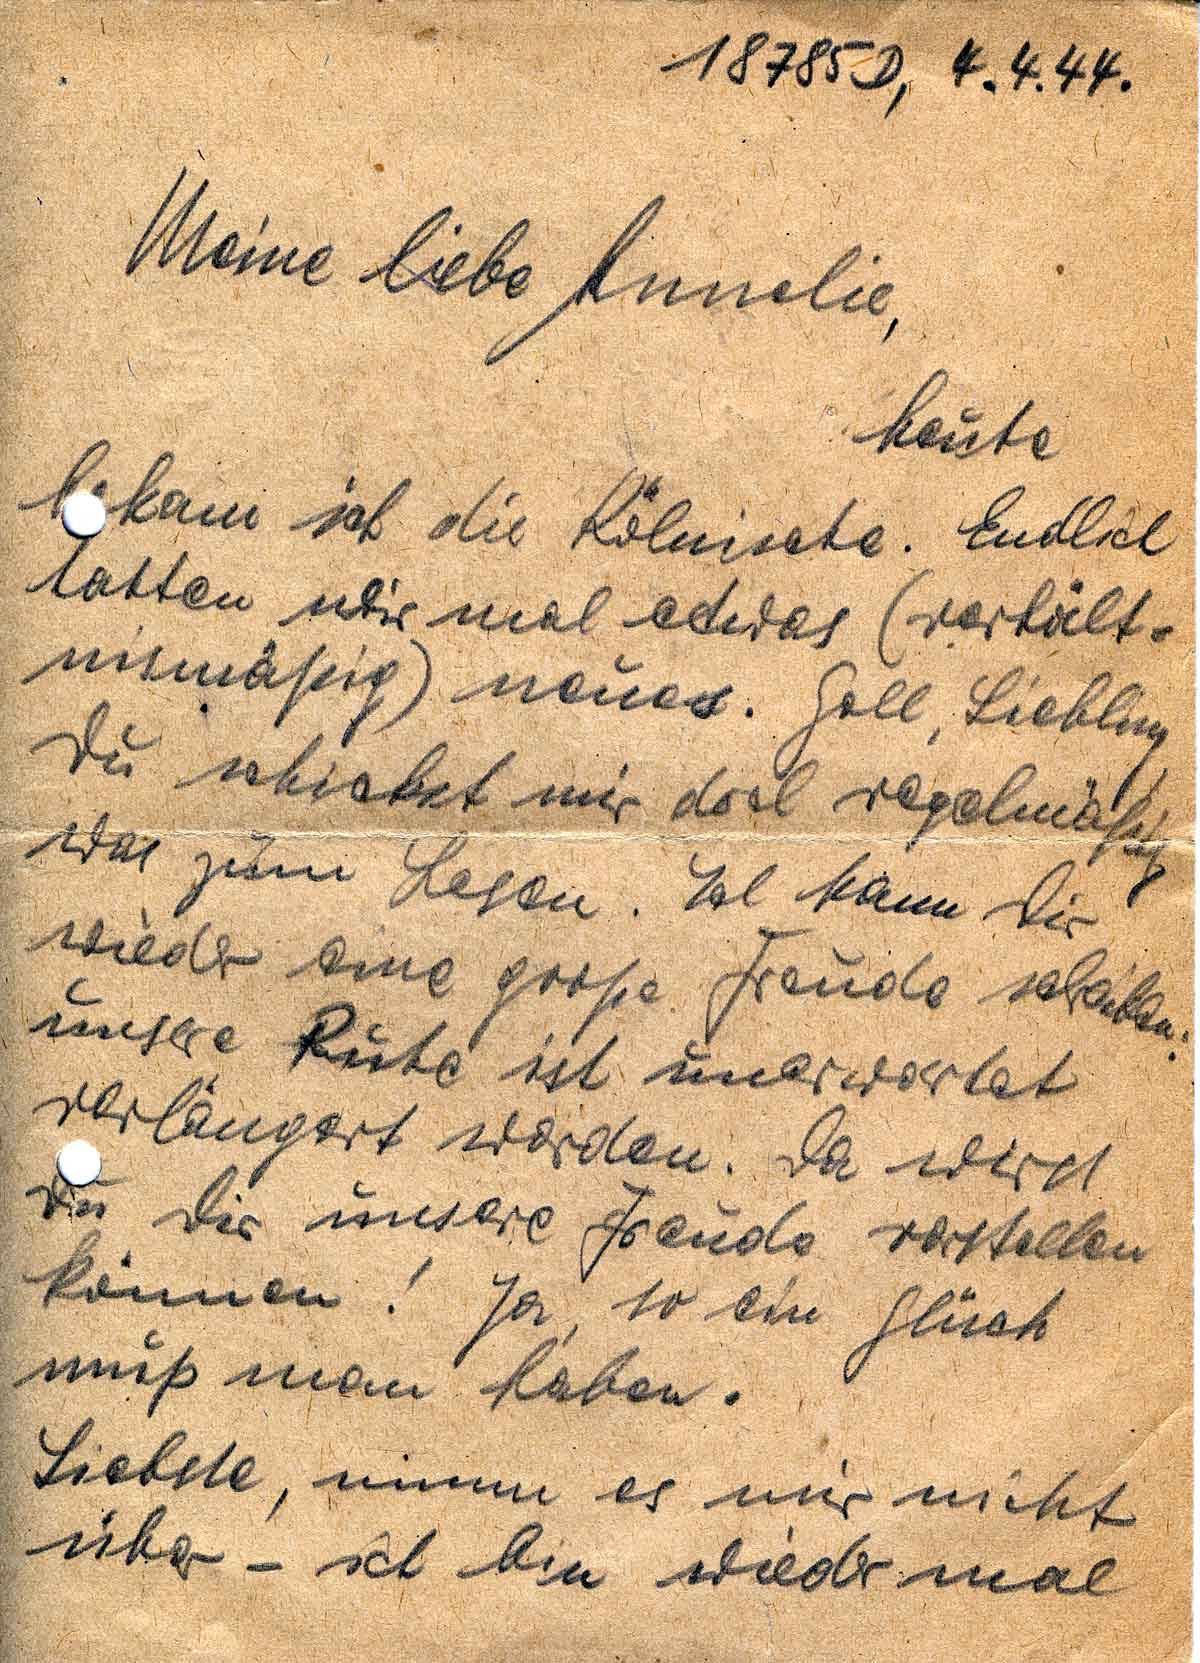 18785D, 4.4.44.
Meine liebe Annelie,
heute
bekam ich die Kölnische. Endlich
hatten wir mal etwas (verhält-
nismäßig) neues. Gell, Liebling
Du schickst mir doch regelmäßig
was zum Lesen. Ich kann Dir
wieder eine große Freude schreiben:
unsere Ruhe ist unerwartet
verlängert worden. Da wirst
Du Dir unsere Freude vorstellen
können! Ja, so ein Glück
muß man haben.
Liebste, nimm es mir nicht
über – ich bin wieder mal